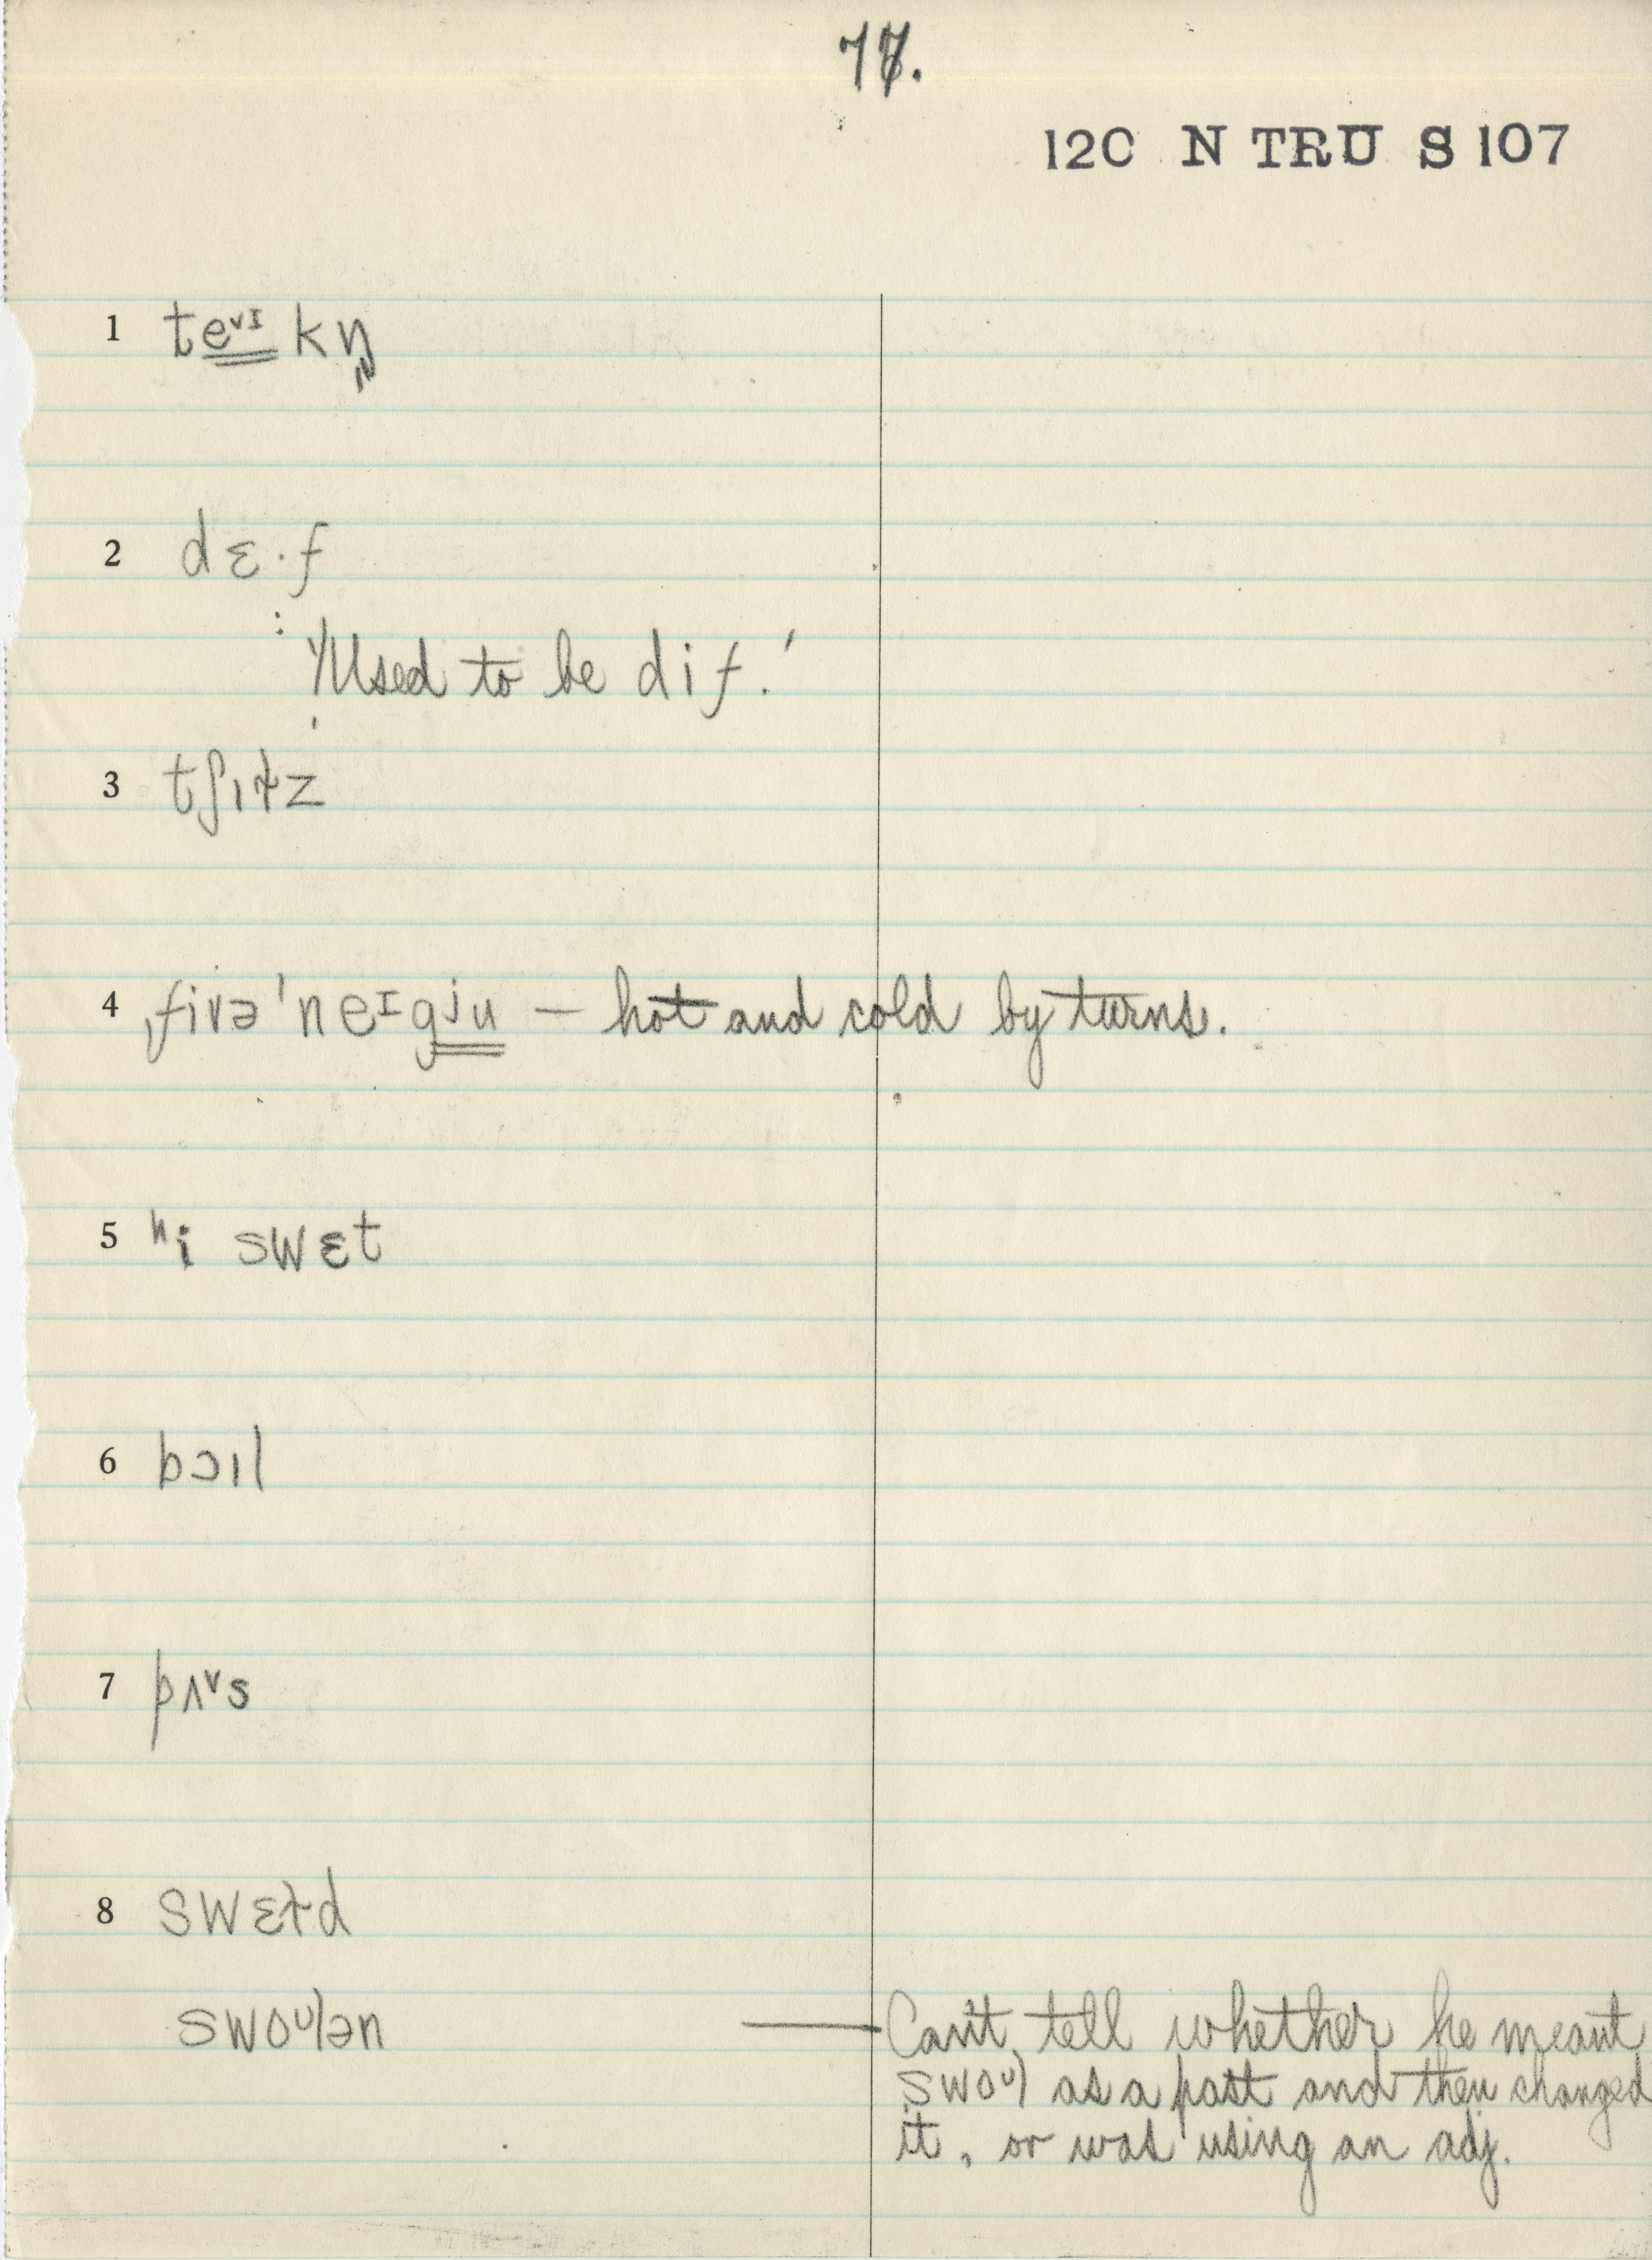 77.
120 N TRU S 107
1 te˅ᶦkŋ̩
2 dɛ·f
: 'Used to be dif.'
3 tʃɪɫz
4 ˌfivəˈneᶦgʲu — hot and cold by turns.
5 ʰi swɛt
6 bɔɪl
7 pʌ˅s
8 swɛɫd
swoᶷlən — Can't tell whether he meant
swoᶷl as a past and then changed
it, or was using an adj.